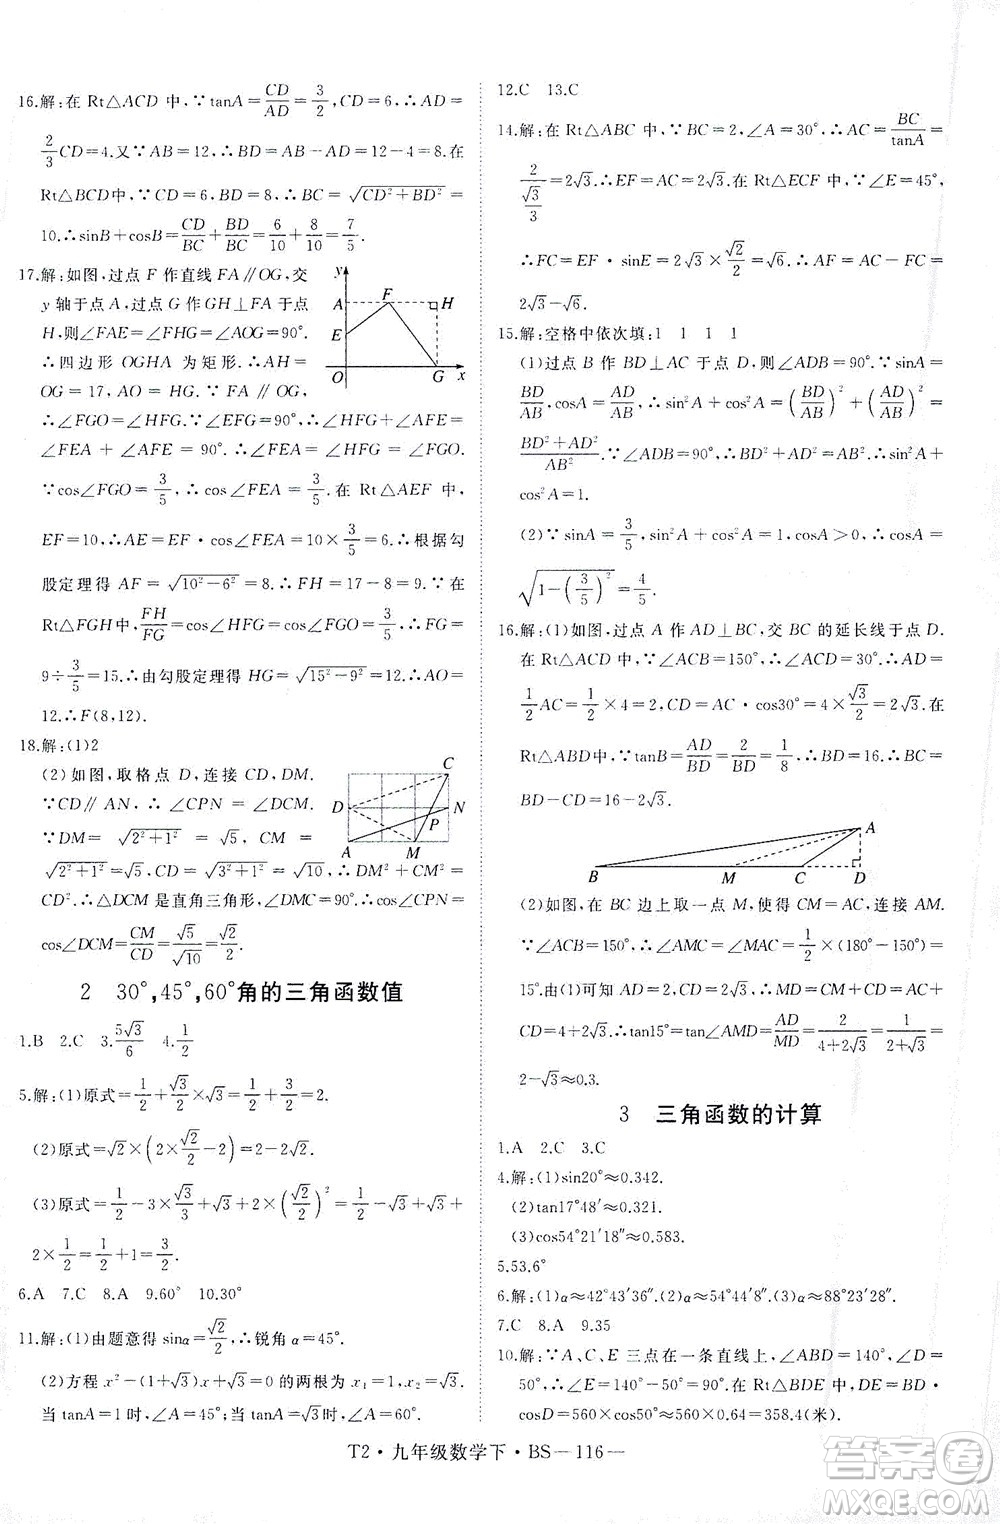 16.解:在 Rt△ACD 中,∵tanA=CD/AD=3/2,∴AD=
2/3CD=4.又∵AB=12,∴BD=AB-AD=8.在
Rt△BCD中,∵CD=6,BD=8,∴BC=√(CD²+BD²)=
10.∴sinB+cosB=CD/BC+BD/BC=6/10+8/10=7/5.
17.解:如图,过点 F 作直线 FA∥OG,交
y 轴于点 A,过点 G 作 GH⊥FA 于点
H,则∠FAE=∠FHG=∠OAF=90°.
∴四边形 OGHA 为矩形.∴AH=
OG=17,AO=HG.∵FA∥OG,
∴∠FGO=∠HFG.∵∠EFG=90°.∴∠HFG+∠AFE=
∠FEA+∠AFE=90°.∴∠FEA=∠HFG=∠FGO.
∵cos∠FGO=3/5,∴cos∠FEA=3/5.在 Rt△AEF 中,
EF=10,∴AE=EF·cos∠FEA=10×3/5=6.∴根据勾
股定理得 AF=√(10²-6²)=8.∴FH=17-8=9.∵在
Rt△FGH中,FH/FG=cos∠HFG=cos∠FGO=3/5,∴FG=
9÷3/5=15.∴由勾股定理得 HG=√(15²-9²)=
12.∴F(8,12).
y
A
F
H
E
O
G
x
18.解:(1)2
(2)如图,取格点 D,连接 CD,DM.
∵CD∥AN,∴∠CPN=∠DCM.
∵DM=√(2²+1²)=√5,CM=
√(2²+1²)=√5,CD=√(3²+1²)=√10,∴DM²+CM²=
CD².∴△DCM 是直角三角形,∠DMC=90°.∴cos∠CPN=
cos∠DCM=CM/CD=√5/√10=√2/2.
C
D
N
P
A
M
2 30°,45°,60°角的三角函数值
1.B 2.C 3.5√3/6 4.1/2
5.解:(1)原式=1/2+√3/2×√3=1/2+3/2=2.
(2)原式=√2×(2×√2/2-2)=2-2√2.
(3)原式=1/2-3×√3/3+√3+2×(√2/2)²=1/2-√3+√3+
2×1/2=1/2+1=3/2.
6.A 7.C 8.A 9.60° 10.30°
11.解:(1)由题意得 sinα=√2/2,∴锐角 α=45°.
(2)方程 x²-(1+√3)x+√3=0的两根为x₁=1,x₂=√3.
当 tanA=1 时,∠A=45°;当 tanA=√3时,∠A=60°.
12.C 13.C
14.解:在 Rt△ABC 中,∵BC=2,∠A=30°,∴AC=BC/tanA=
2/(√3/3)=2√3.∴EF=AC=2√3.在 Rt△ECF 中,∵∠E=45°,
∴FC=EF·sinE=2√3×√2/2=√6.∴AF=AC-FC=
2√3-√6.
15.解:空格中依次填:1 1 1 1
(1)过点 B 作 BD⊥AC 于点 D,则∠ADB=90°.∵sinA=
BD/AB,cosA=AD/AB,∴sin²A+cos²A=(BD/AB)²+(AD/AB)²=
(BD²+AD²)/AB².∵∠ADB=90°,∴BD²+AD²=AB².∴sin²A+
cos²A=1.
(2)∵sinA=3/5,sin²A+cos²A=1,cosA>0,∴cosA=
√(1-(3/5)²)=4/5.
16.解:(1)如图,过点 A 作 AD⊥BC,交 BC 的延长线于点 D.
在 Rt△ACD 中,∵∠ACB=150°,∴∠ACD=30°.∴AD=
1/2AC=1/2×4=2,CD=AC·cos30°=4×√3/2=2√3.在
Rt△ABD中,∵tanB=AD/BD=2/BD=1/8,∴BD=16.∴BC=
BD-CD=16-2√3.
A
B
M
C
D
(2)如图,在 BC 边上取一点 M,使得 CM=AC,连接 AM.
∵∠ACB=150°,∴∠AMC=∠MAC=1/2×(180°-150°)=
15°.由(1)可知 AD=2,CD=2√3,∴MD=MC+CD=AC+
CD=4+2√3.∴tan15°=tan∠AMD=AD/MD=2/(4+2√3)=1/(2+√3)=
2-√3≈0.3.
3 三角函数的计算
1.A 2.C 3.C
4.解:(1)sin20°≈0.342.
(2)tan17°48′≈0.321.
(3)cos54°21′18″≈0.583.
5.53.6°
6.解:(1)α≈42°43′36″;(2)α≈74°3′17″;(3)α≈88°23′22″.
7.C 8.A 9.35
10.解:∵A、C、E 三点在一条直线上,∠ABD=140°,∠D=
50°,∴∠E=140°-50°=90°.在 Rt△BDE 中,DE=BD·
cosD=560×cos50°≈560×0.64=358.4(米).
T2·九年级数学下·BS—116—
答案圈
MXQE.COM